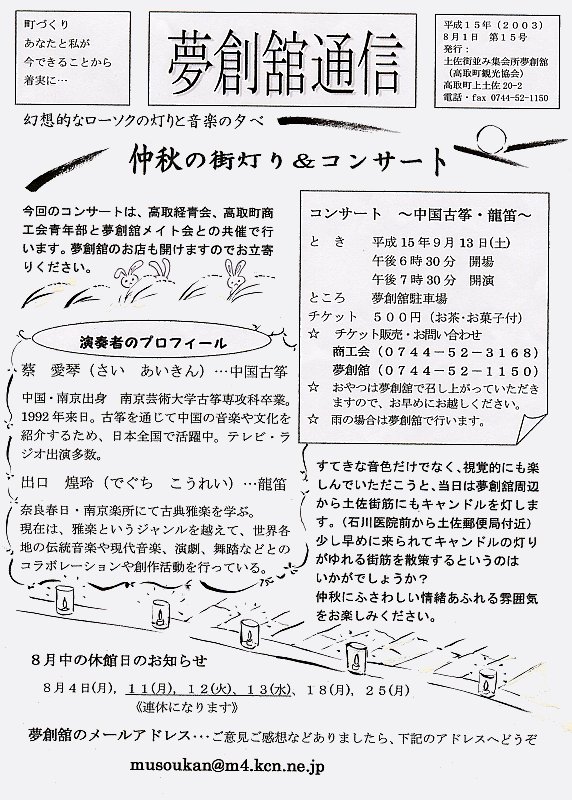 町づくり
あなたと私が
今できることから
着実に…
夢創舘通信
平成１５年（２００３）
８月１日　第１５号
発行：
土佐街並み集会所夢創舘
（高取町観光協会）
高取町上土佐20-2
電話・fax 0744-52-1150
幻想的なローソクの灯りと音楽の夕べ
仲秋の街灯り＆コンサート
今回のコンサートは、高取経青会、高取町商
工会青年部と夢創舘メイト会との共催で行
います。夢創舘のお店も開けますのでお立寄
りください。
コンサート　～中国古筝・龍笛～
と　き　平成15年９月13日(土)
午後６時30分　開場
午後７時30分　開演
ところ　夢創舘駐車場
チケット　５００円（お茶・お菓子付）
☆　チケット販売・お問い合わせ
商工会（０７４４－５２－３１６８）
夢創舘（０７４４－５２－１１５０）
☆　おやつは夢創舘で召し上がっていただき
ますので、お早めにお越しください。
☆　雨の場合は夢創舘で行います。
演奏者のプロフィール
蔡　愛琴（さい　あいきん）…中国古筝
中国・南京出身　南京芸術大学古筝専攻科卒業。
1992年来日。古筝を通じて中国の音楽や文化を
紹介するため、日本全国で活躍中。テレビ・ラ
ジオ出演多数。
出口　煌玲（でぐち　こうれい）…龍笛
奈良春日・南京楽所にて古典雅楽を学ぶ。
現在は、雅楽というジャンルを越えて、世界各
地の伝統音楽や現代音楽、演劇、舞踏などとの
コラボレーションや創作活動を行っている。
すてきな音色だけでなく、視覚的にも楽
しんでいただこうと、当日は夢創舘周辺
から土佐街筋にもキャンドルを灯しま
す。（石川医院前から土佐郵便局付近）
少し早めに来られてキャンドルの灯り
がゆれる街筋を散策するというのは
いかがでしょうか？
仲秋にふさわしい情緒あふれる雰囲気
をお楽しみください。
８月中の休館日のお知らせ
８月４日(月)，１１(月)，１２(火)、１３(水)，１８(月)，２５(月)
《連休になります》
夢創舘のメールアドレス…ご意見ご感想などありましたら、下記のアドレスへどうぞ
musoukan@m4.kcn.ne.jp